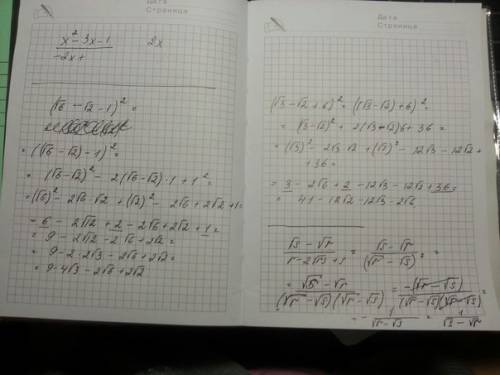 Дата
Страница
x² - 3x - 1      2x
-2x +
(√6 - √2 - 1)² =
= ((√6 - √2) - 1)² =
= (√6 - √2)² - 2(√6 - √2)·1 + 1² =
= (√6)² - 2√6·√2 + (√2)² - 2√6 + 2√2 + 1 =
= 6 - 2√12 + 2 - 2√6 + 2√2 + 1 =
= 9 - 2√12 - 2√6 + 2√2 =
= 9 - 2·2√3 - 2√6 + 2√2 =
= 9 - 4√3 - 2√6 + 2√2
Дата
Страница
(√3 - √2 + 6)² = ((√3 - √2) + 6)² =
= (√3 - √2)² + 2(√3 - √2)6 + 36 =
= (√3)² - 2√3·√2 + (√2)² - 12√3 - 12√2 +
+ 36 =
= 3 - 2√6 + 2 - 12√3 - 12√2 + 36 =
= 41 - 12√2 - 12√3 - 2√6
(√s - √r)/(r - 2√rs + s) = (√s - √r)/(√r - √s)² =
= (√s - √r)/((√r - √s)(√r - √s)) = -(√r - √s)/((√r - √s)(√r - √s)) =
= - 1/(√r - √s) = 1/(√s - √r)